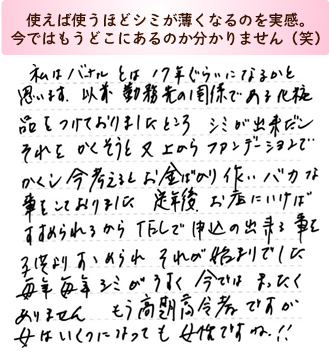 使えば使うほどシミが薄くなるのを実感。
今ではもうどこにあるのか分かりません（笑）
私はバナルとは17年ぐらいになるかと
思います。以前勤務先の関係である化粧
品をつけておりましたところ シミが出来だし
それをかくそうと又上からファンデーションで
かくし今考えるとお金ばかり使いバカな
事をしておりました 定年後 お店にいけば
すすめられるからTELで申込の出来る事を
子供よりすゝめられ それが始まりでした
毎年毎年シミがうすく今では まったく
ありません もう高齢者ですが
女はいくつになっても女性ですね!!